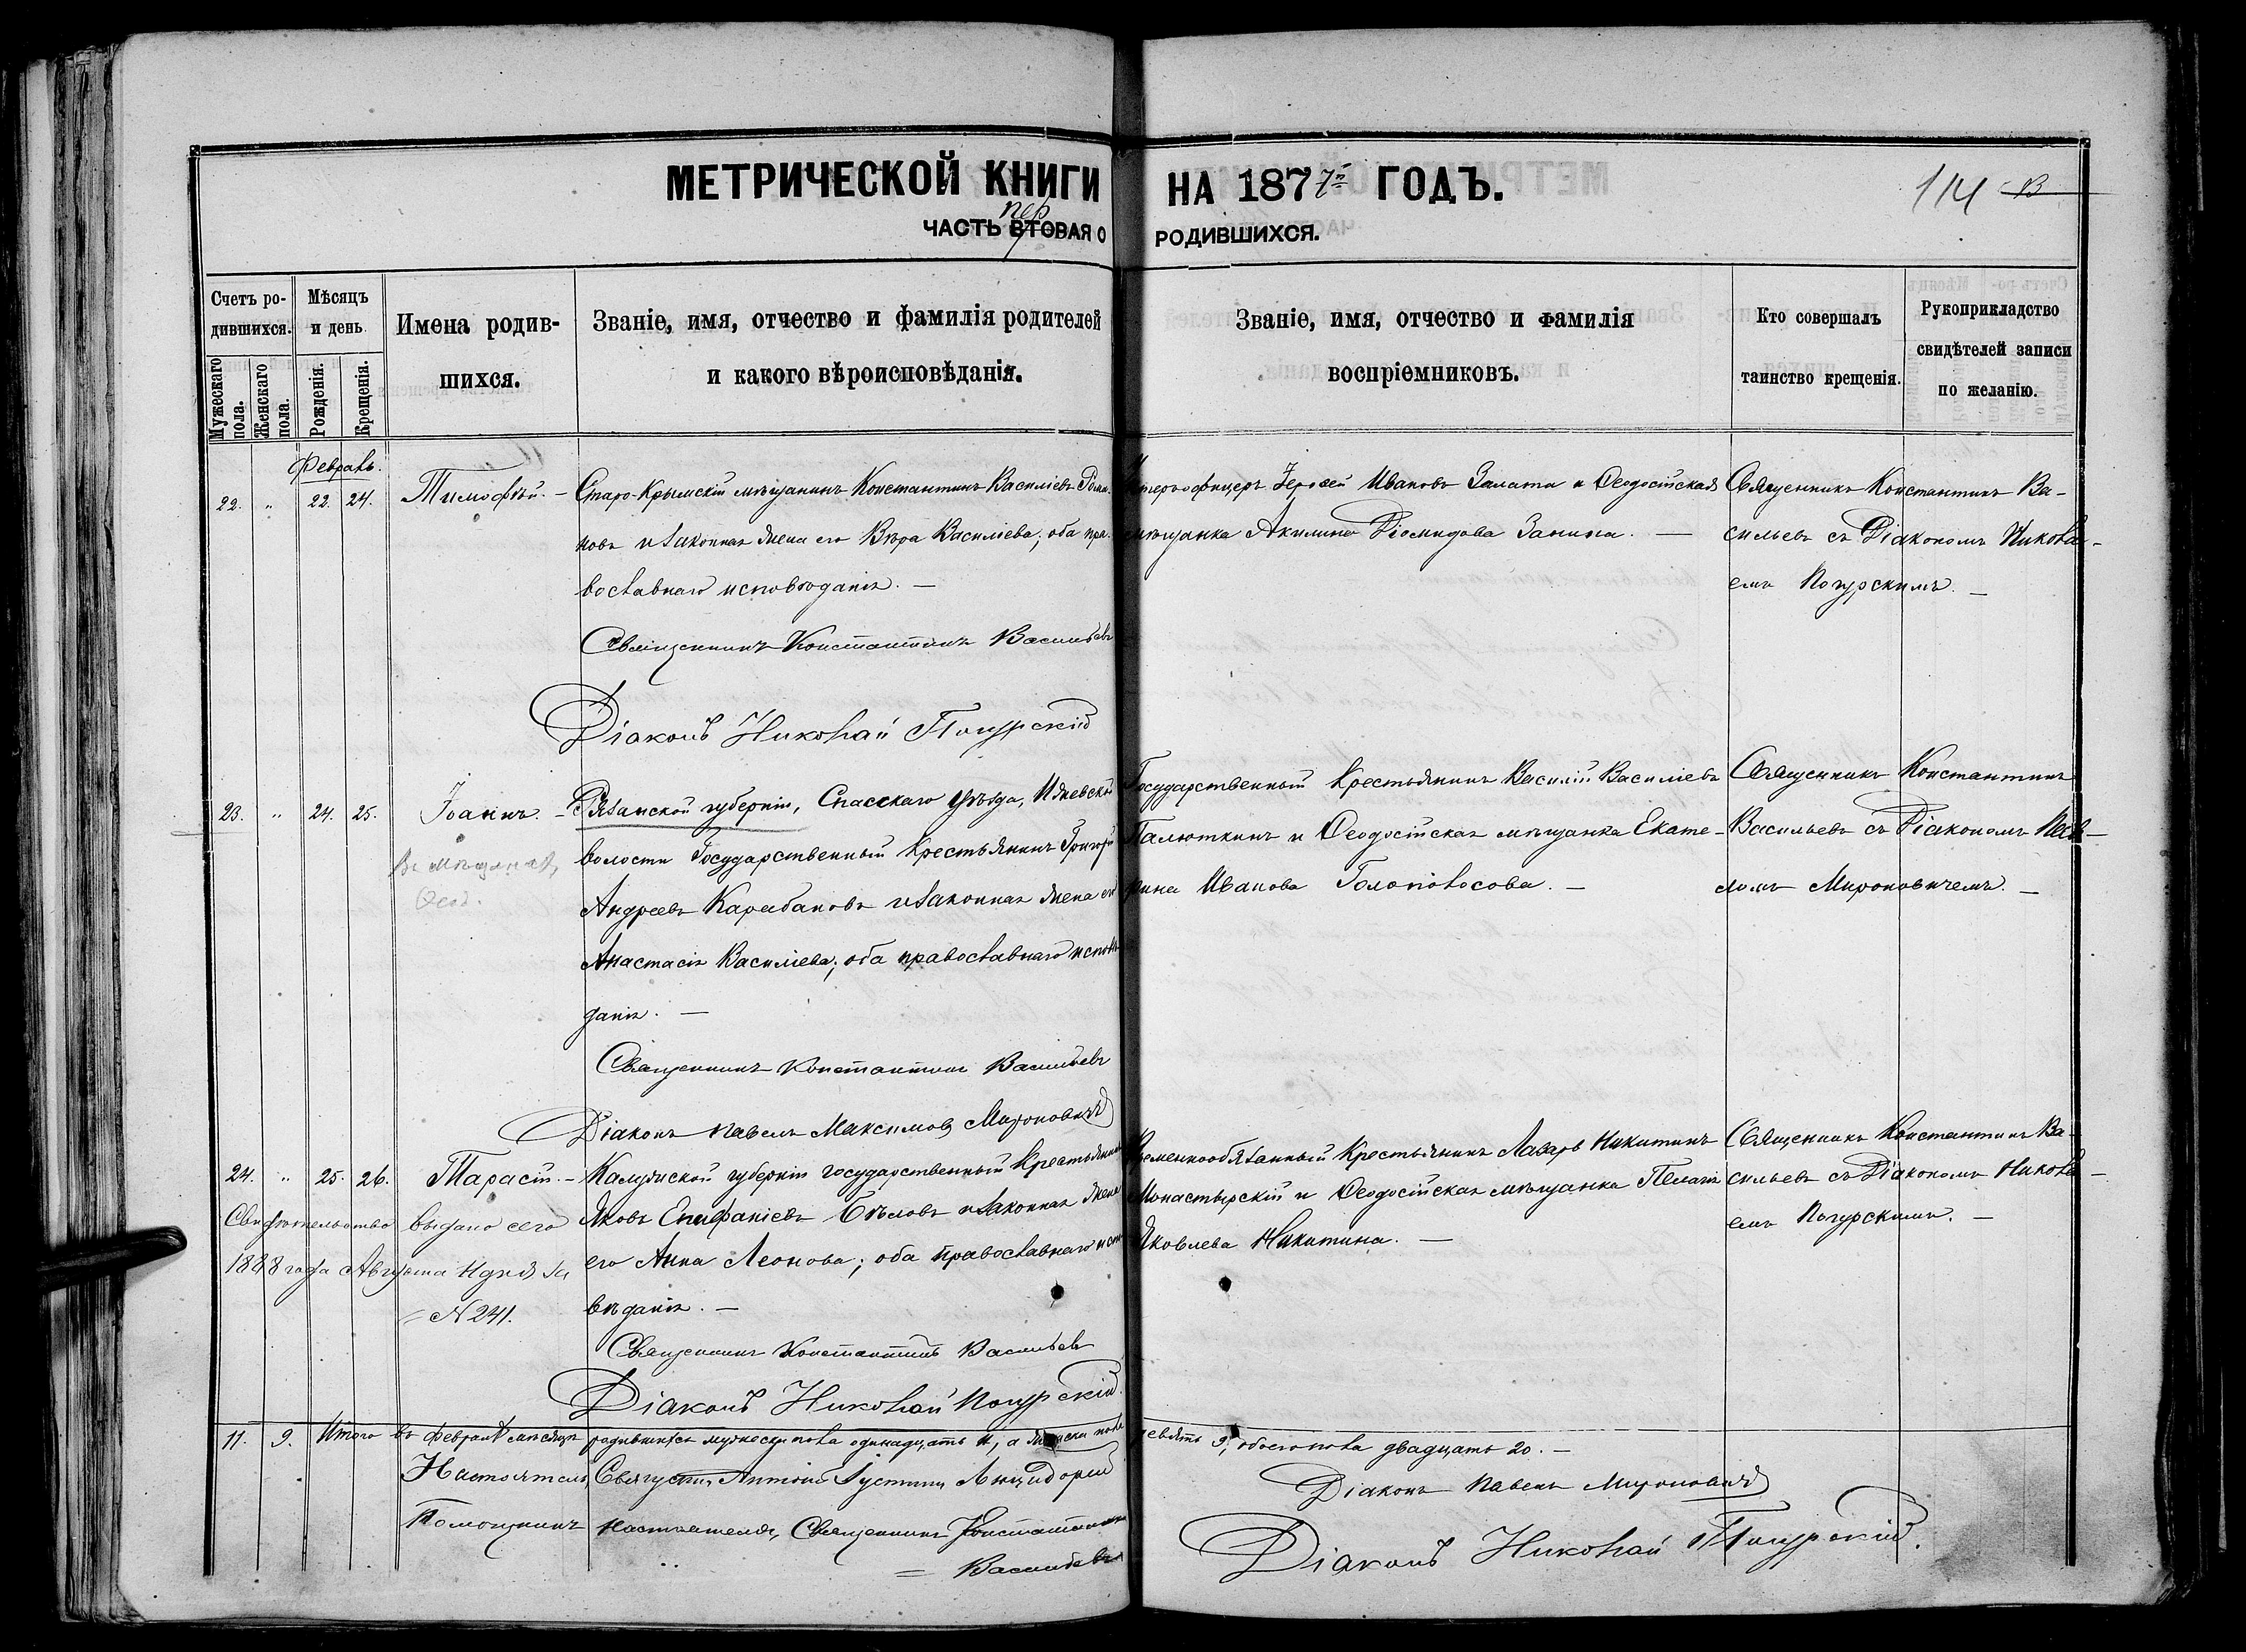 МЕТРИЧЕСКОЙ КНИГИ НА 1877 ГОДЪ.
114
ЧАСТЬ ВТОРАЯ О РОДИВШИХСЯ.
пер
Счетъ родившихся.
Мужескаго пола.
Женскаго пола.
Мѣсяцъ и день
Рожденія.
Крещенія.
Имена родившихся.
Званіе, имя, отчество и фамилія родителей
и какого вѣроисповѣданія.
Званіе, имя, отчество и фамилія
воспріемниковъ.
Кто совершалъ
таинство крещенія.
Рукоприкладство
свидѣтелей записи
по желанію.
Февраль.
22. " 22. 24. Тимофѣй. –
Старо-Крымскій мѣщанинъ Константинъ Василіевъ
новъ и законная жена его Вѣра Василіева; оба пра-
вославнаго исповѣданія. –
Священникъ Константинъ Васильевъ
Діаконъ Николай
Ивановъ и Ѳеодосійская
мѣщанка Акилина Діомидова Занина. –
Священникъ Константинъ Ва-
сильевъ съ Діакономъ Никола-
емъ
23. " 24. 25. Іоаннъ. –
Въ мѣщанахъ
Ѳеод.
Рязанской губерніи, Спасскаго уѣзда, Ижевской
волости Государственный Крестьянинъ Григорій
Андреевъ Карабановъ и законная жена его
Анастасія Василіева; оба православнаго исповѣ-
данія. –
Священникъ Константинъ Васильевъ
Діаконъ Павелъ Максимовъ Мироновичъ
Государственный Крестьянинъ Василій Василіевъ
Палюткинъ и Ѳеодосійская мѣщанка Екате-
рина Иванова Голоколосова. –
Священникъ Константинъ
Васильевъ съ Діакономъ Пав-
ломъ Мироновичемъ. –
24. " 25. 26. Тарасій. –
Свидѣтельство выдано сего
1888 года Августа 11 дня за
№ 241.
Калужской губерніи государственный Крестьянинъ
Яковъ Епифаніевъ Бѣловъ и законная жена
его Анна Леонова; оба православнаго испо-
вѣданія. –
Священникъ Константинъ Васильевъ
Діаконъ Николай
Временнообязанный Крестьянинъ Лазарь Никитинъ
Монастырскій и Ѳеодосійская мѣщанка Пелагія
Яковлева Никитина. –
Священникъ Константинъ Ва-
сильевъ съ Діакономъ Никола-
емъ
11. 9. Итого въ Февралѣ мѣсяцѣ родившихся мужескаго пола одинадцать 11, а женска пола девять 9, обоего пола двадцать 20. –
Настоятель, Священникъ Антоній
Помощникъ Настоятеля, Священникъ Константинъ
Васильевъ
Діаконъ Павелъ Мироновичъ
Діаконъ Николай